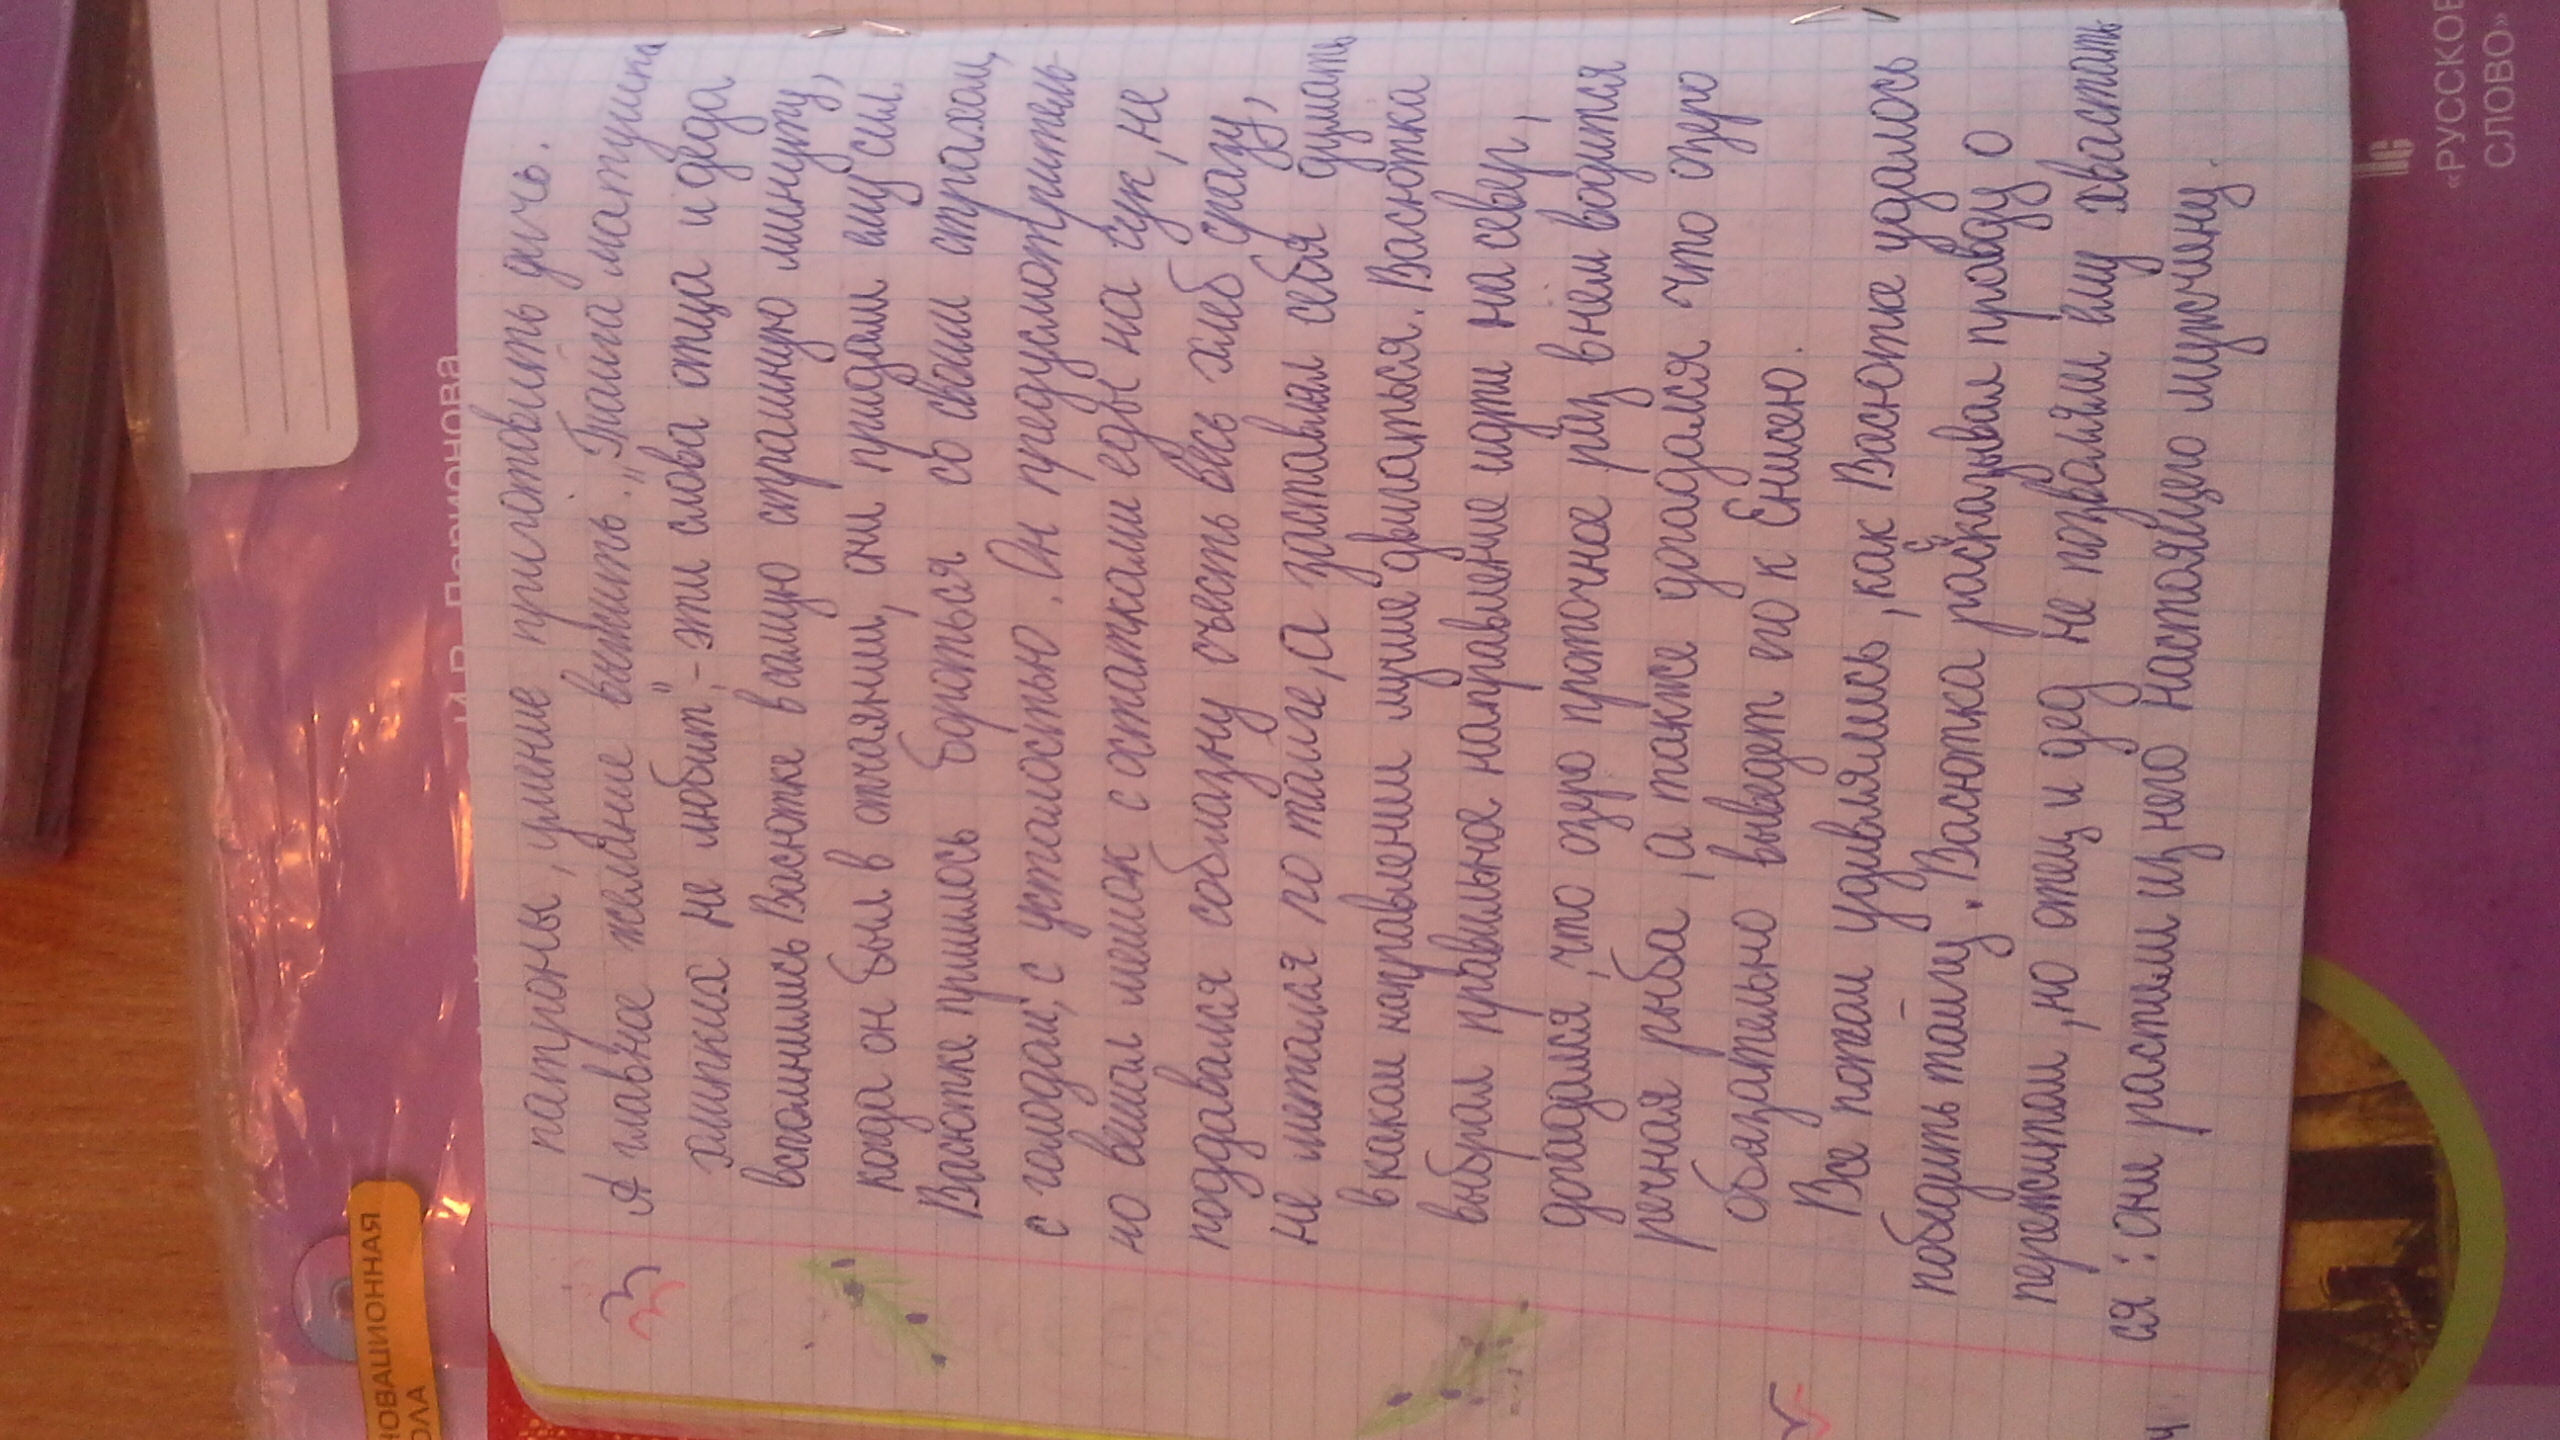 патроны, умение приготовить дичь.
А главное желание выжить. „Тайга матушка
хлипких не любит", - эти слова отца и деда
вспомнились Васютке в самую страшную минуту,
когда он был в отчаянии, они придали ему сил.
Васютке пришлось бороться со своим страхом,
с голодом, с усталостью. Он предусмотритель-
но вешал мешок с остатками еды на сук, не
поддавался соблазну съесть весь хлеб сразу,
не метался по тайге, а заставлял себя думать
в каком направлении лучше двигаться. Васютка
выбрал правильное направление идти на север,
догадался, что озеро проточное раз в нем водится
речная рыба, а также догадался что озеро
обязательно выведет его к Енисею.
Все потом удивлялись, как Васютке удалось
победить тайгу. Васютка расказывал правду о
пережитом, но отец и дед не позволяли ему хвастать
ся: они растили из него настоящего мужчину.
НОВАЦИОННАЯ
ОЛА
«РУССКОЕ
СЛОВО»